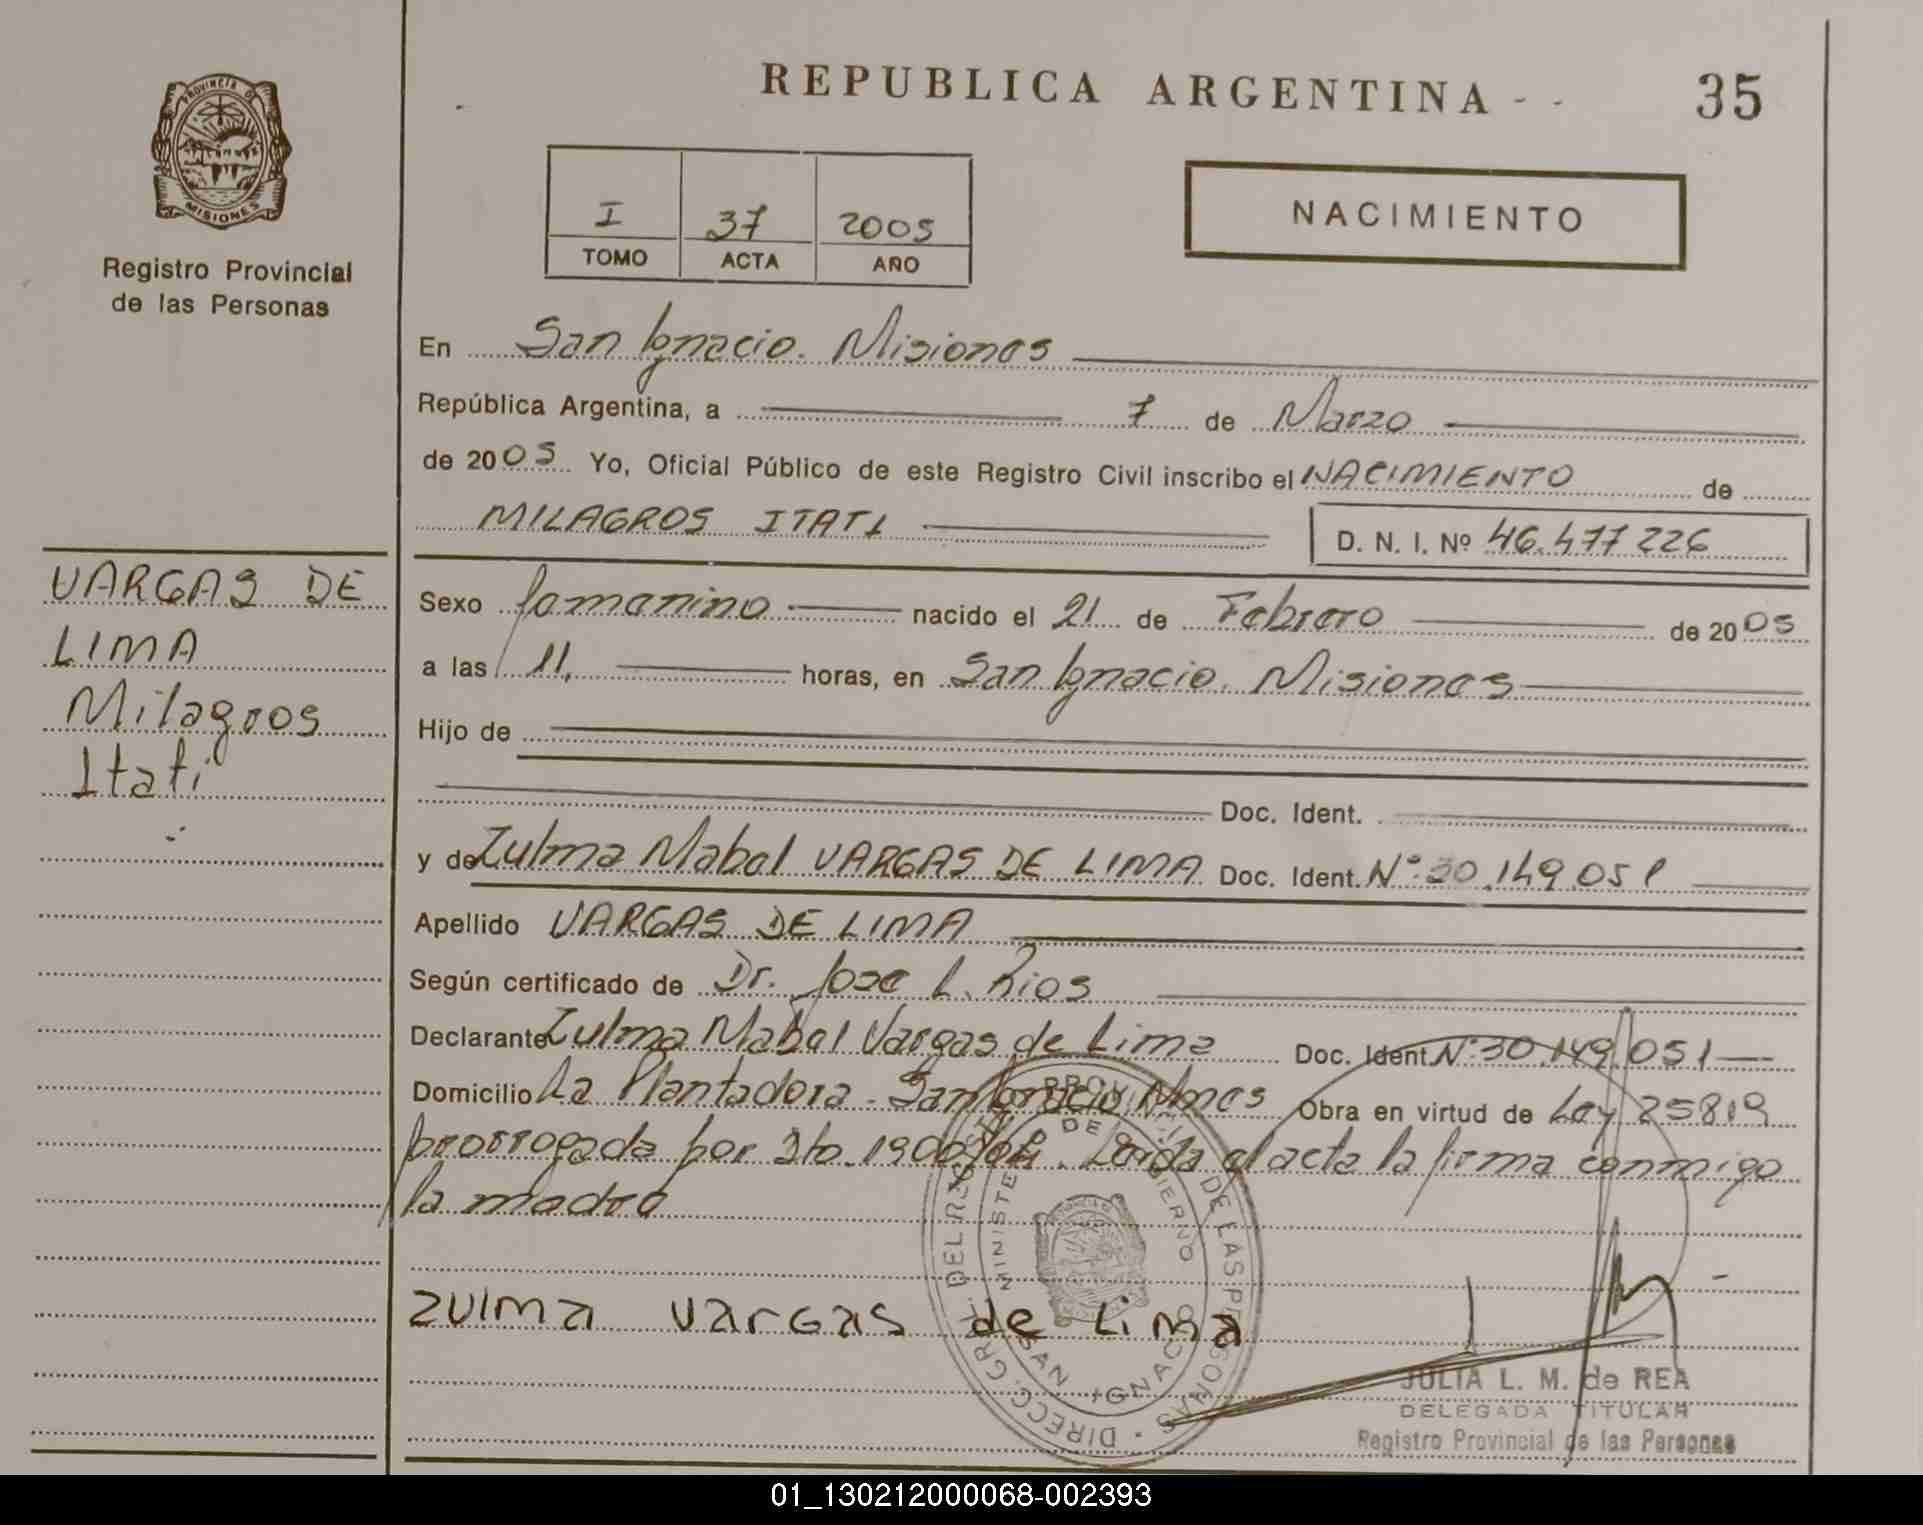 REPUBLICA ARGENTINA - -
35
PROVINCIA DE
MISIONES
Registro Provincial
de las Personas
I 37 2005
TOMO ACTA AÑO
NACIMIENTO
En San Ignacio. Misiones
República Argentina, a 7 de Marzo
de 2005 Yo, Oficial Público de este Registro Civil inscribo el NACIMIENTO de
MILAGROS ITATI
D. N. I. Nº 46.477 226
VARGAS DE
LIMA
Milagros
Itatí
Sexo femenino nacido el 21 de Febrero de 2005
a las 11, horas, en San Ignacio. Misiones
Hijo de
Doc. Ident.
y de Zulma Mabel VARGAS DE LIMA Doc. Ident. Nº 30.149.051
Apellido VARGAS DE LIMA
Según certificado de Dr. Jose L. Rios
Declarante Zulma Mabel Vargas de Lima Doc. Ident. Nº 30.149.051
Domicilio La Plantadora - San Ignacio, Mnes Obra en virtud de Ley 25819
prorrogada por Dto. 1900/04. Leída el acta la firma conmigo
la madre
zulma vargas de Lima
DIRECC. GRAL. DEL REGISTRO PROVINCIAL DE LAS PERSONAS
MINISTERIO DE GOBIERNO
SAN IGNACIO
JULIA L. M. de REA
DELEGADA TITULAR
Registro Provincial de las Personas
01_130212000068-002393